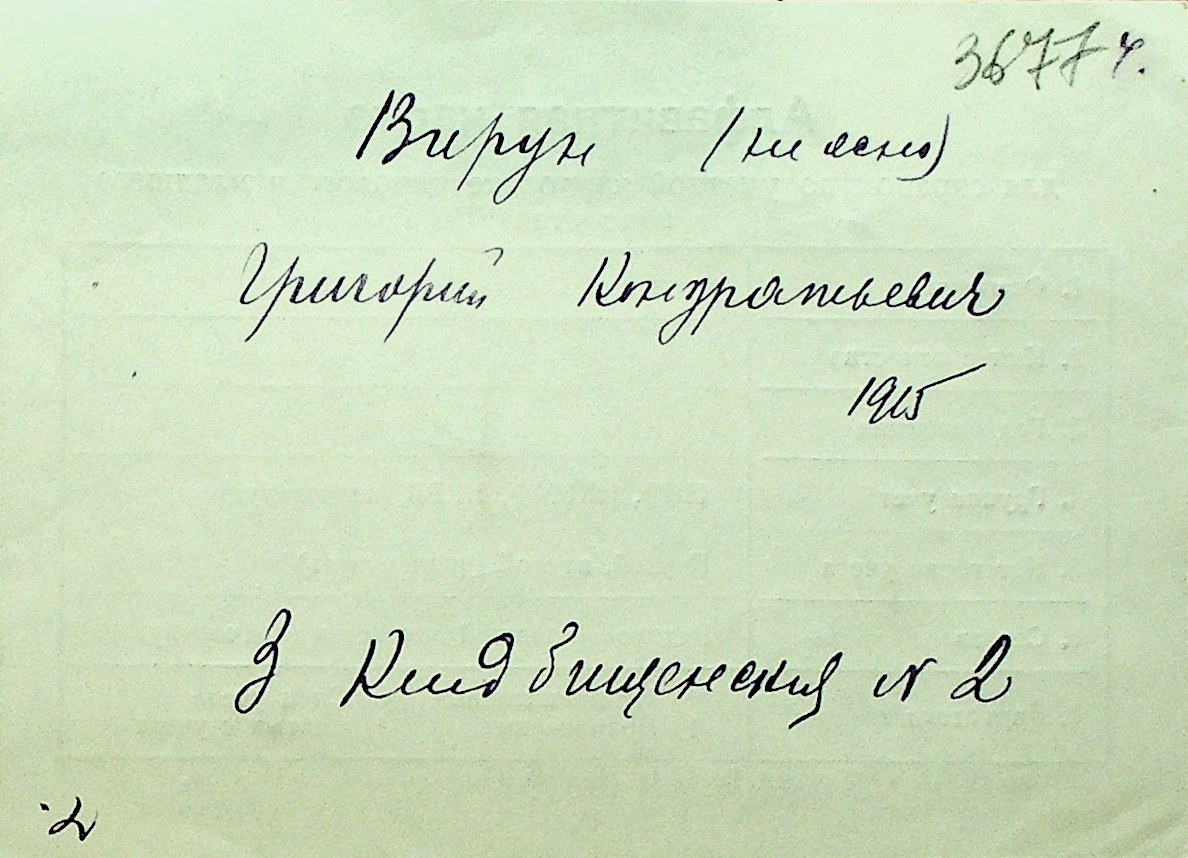 3677 ч.
Вирун (не ясно)
Григорий Кондратьевич
1915
З Кладбищенская N 2
2